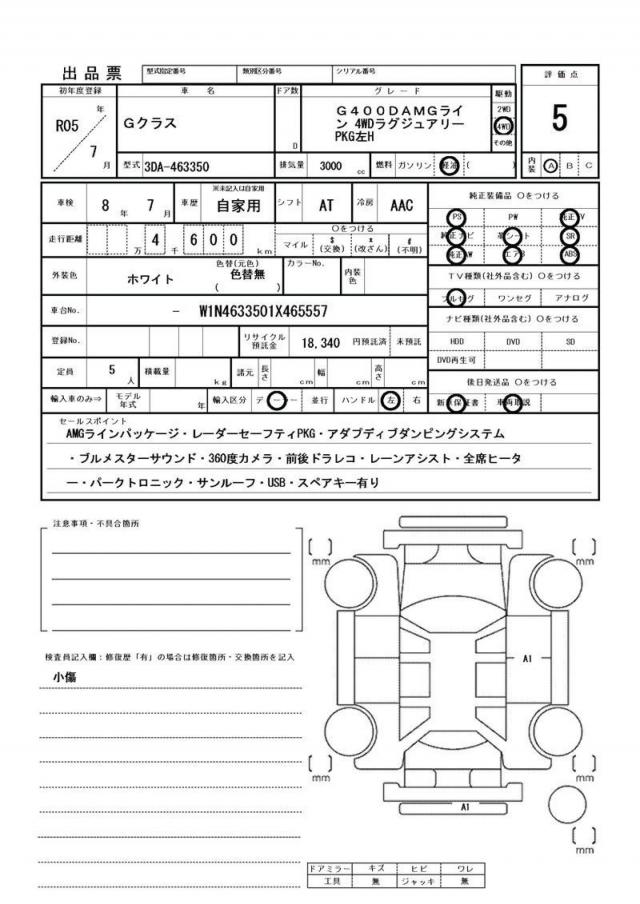 出品票 型式指定番号 類別区分番号 シリアル番号 評価点
初年度登録 車名 ドア数 グレード 駆動
R05 年 7 月
Gクラス
D
G400DAMGライ
ン 4WDラグジュアリー
PKG左H
2WD
4WD
その他
5
型式 3DA-463350 排気量 3000 cc 燃料 ガソリン 軽油 ( ) 内装 A B C
車検 8 年 7 月 車歴 ※未記入は自家用 自家用 シフト AT 冷房 AAC 純正装備品 ○をつける
PS PW 純正TV
走行距離 万 4 千 6 0 0 km ○をつける
マイル $(交換) *(改ざん) #(不明)
純正ナビ 革シート SR
純正AW エアB ABS
外装色 ホワイト 色替(元色) 色替無 ( ) カラーNo. 内装色
TV種類(社外品含む) ○をつける
フルセグ ワンセグ アナログ
車台No. － W1N4633501X465557 ナビ種類(社外品含む) ○をつける
登録No. リサイクル預託金 18,340 円預託済 未預託 HDD DVD SD
DVD再生可
定員 5 人 積載量 kg 諸元 長さ cm 幅 cm 高さ cm 後日発送品 ○をつける
輸入車のみ⇒ モデル年式 年 輸入区分 ディーラー 並行 ハンドル 左 右 新車保証書 車両取説
セールスポイント
AMGラインパッケージ・レーダーセーフティPKG・アダプディブダンピングシステム
・ブルメスターサウンド・360度カメラ・前後ドラレコ・レーンアシスト・全席ヒータ
ー・パークトロニック・サンルーフ・USB・スペアキー有り
注意事項・不具合箇所
[ ] mm [ ] mm
検査員記入欄：修復歴「有」の場合は修復箇所・交換箇所を記入
小傷
A1
[ ] mm [ ] mm
A1
[ ] mm
ドアミラー キズ ヒビ ワレ
工具 無 ジャッキ 無